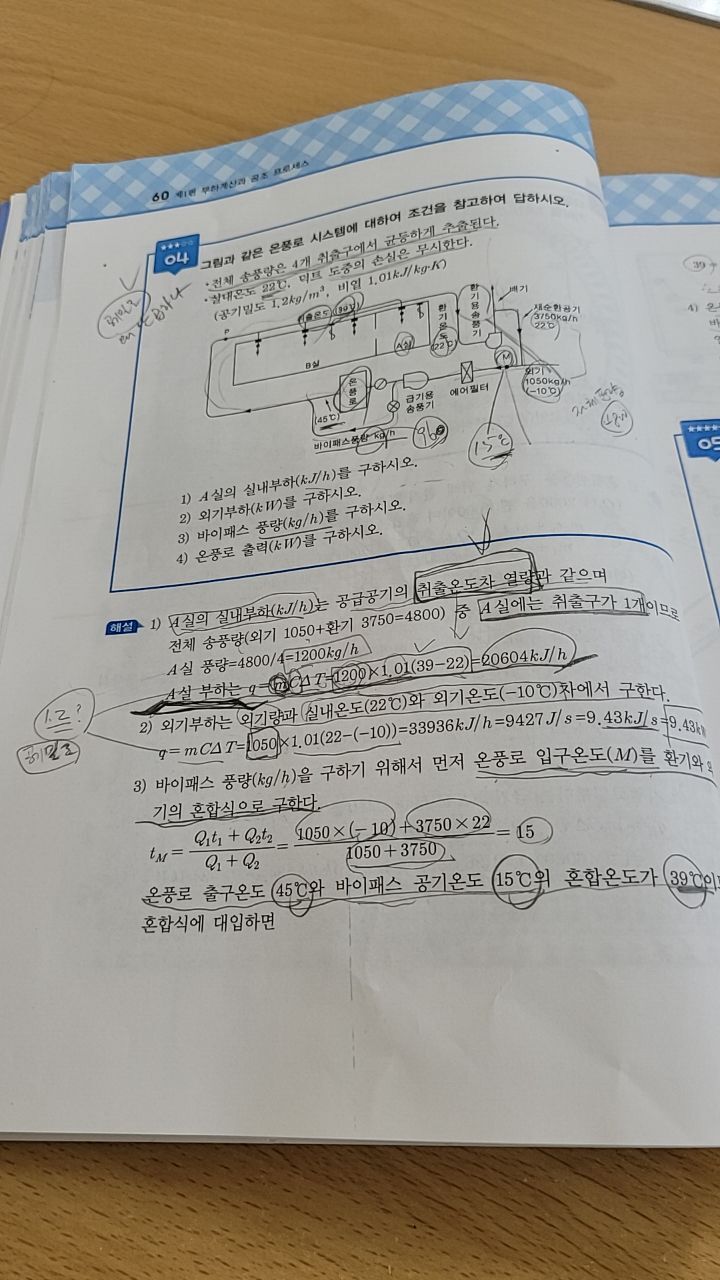 60 제1편 부하계산과 공조 프로세스
★★★☆☆
04
그림과 같은 온풍로 시스템에 대하여 조건을 참고하여 답하시오.
·전체 송풍량은 4개 취출구에서 균등하게 추출된다.
·실내온도 22℃, 덕트 도중의 손실은 무시한다.
(공기밀도 1.2kg/m³, 비열 1.01kJ/kg·K)
취출온도 (39℃)
P
환기온도 (22℃)
환기용송풍기
배기
재순환공기
3750kg/h
22℃
A실
B실
M
외기
1050kg/h
(-10℃)
온풍로
급기용
송풍기
에어필터
(45℃)
바이패스풍량 kg/h
960
15℃
1) A실의 실내부하(kJ/h)를 구하시오.
2) 외기부하(kW)를 구하시오.
3) 바이패스 풍량(kg/h)를 구하시오.
4) 온풍로 출력(kW)를 구하시오.
해설
1) A실의 실내부하(kJ/h)는 공급공기의 취출온도차 열량과 같으며
전체 송풍량(외기 1050+환기 3750=4800) 중 A실에는 취출구가 1개이므로
A실 풍량=4800/4=1200kg/h
A실 부하는 q=mCΔT=1200×1.01(39-22)=20604kJ/h
1.2?
공기밀도
2) 외기부하는 외기량과 실내온도(22℃)와 외기온도(-10℃)차에서 구한다.
q=mCΔT=1050×1.01(22-(-10))=33936kJ/h=9427J/s=9.43kJ/s=9.43kW
3) 바이패스 풍량(kg/h)을 구하기 위해서 먼저 온풍로 입구온도(M)를 환기와 외
기의 혼합식으로 구한다.
t_M = (Q₁t₁ + Q₂t₂)/(Q₁ + Q₂) = (1050×(-10)+3750×22)/(1050+3750) = 15
온풍로 출구온도 45℃와 바이패스 공기온도 15℃의 혼합온도가 39℃이므
혼합식에 대입하면
39
4) 온
05